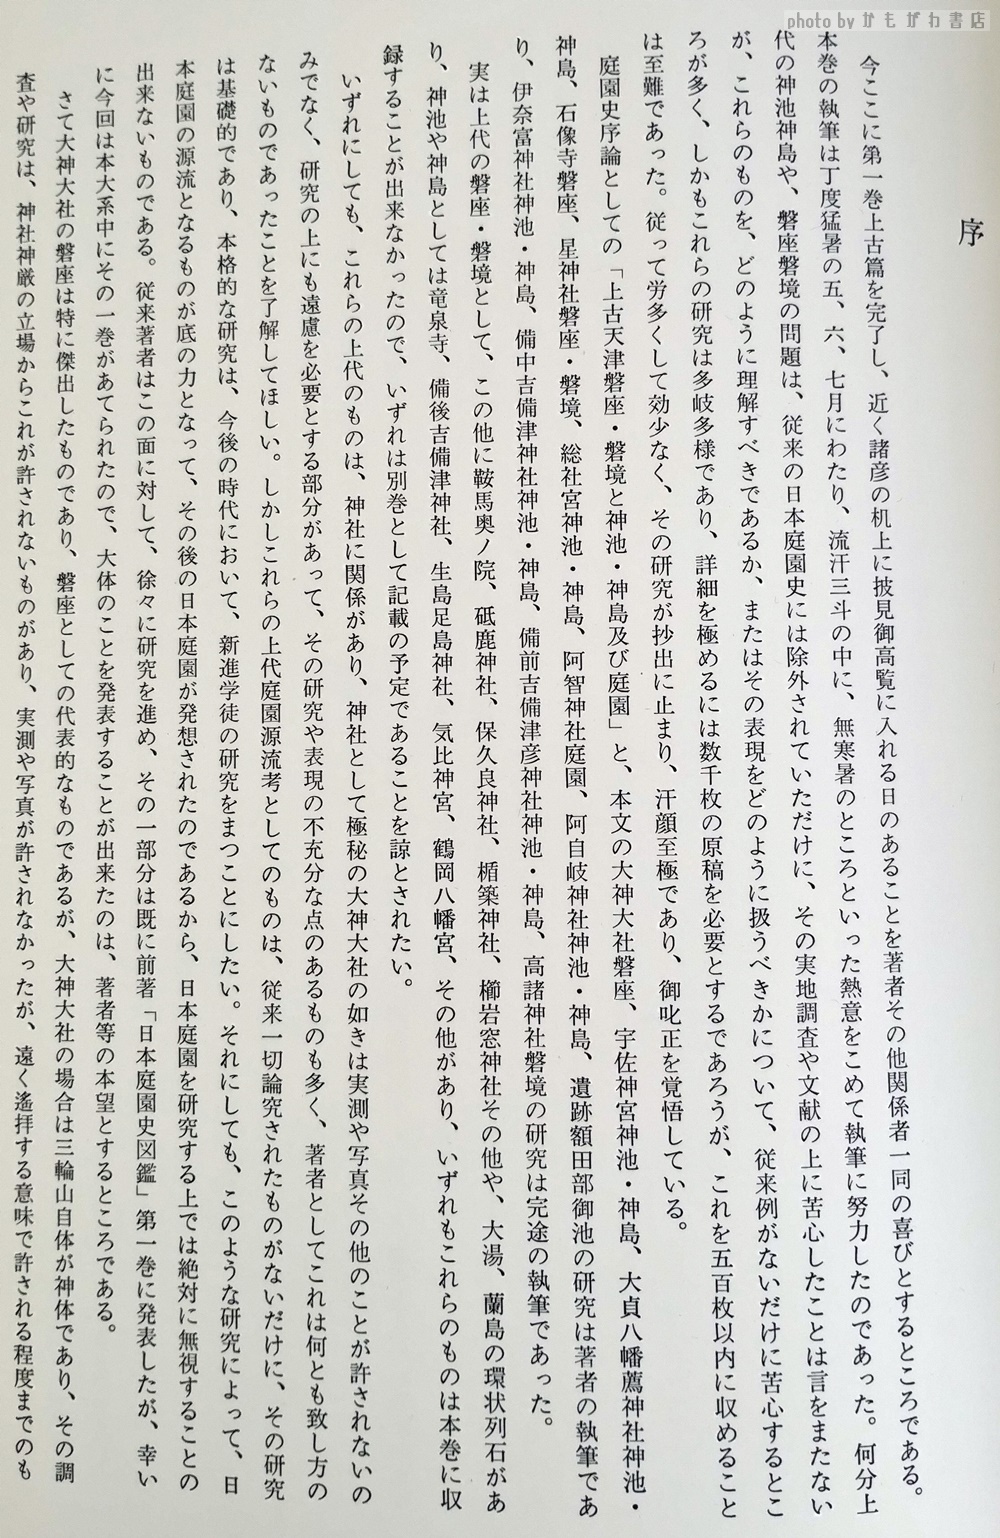 photo by かもがわ書店
序
今ここに第一巻上古篇を完了し、近く諸彦の机上に披見御高覧に入れる日のあることを著者その他関係者一同の喜びとするところである。
本巻の執筆は丁度猛暑の五、六、七月にわたり、流汗三斗の中に、無寒暑のところといった熱意をこめて執筆に努力したのであった。何分上
代の神池神島や、磐座磐境の問題は、従来の日本庭園史には除外されていただけに、その実地調査や文献の上に苦心したことは言をまたない
が、これらのものを、どのように理解すべきであるか、またはその表現をどのように扱うべきかについて、従来例がないだけに苦心するとこ
ろが多く、しかもこれらの研究は多岐多様であり、詳細を極めるには数千枚の原稿を必要とするであろうが、これを五百枚以内に収めること
は至難であった。従って労多くして効少なく、その研究が抄出に止まり、汗顔至極であり、御叱正を覚悟している。
庭園史序論としての「上古天津磐座・磐境と神池・神島及び庭園」と、本文の大神大社磐座、宇佐神宮神池・神島、大貞八幡薦神社神池・
神島、石像寺磐座、星神社磐座・磐境、総社宮神池・神島、阿智神社庭園、阿自岐神社神池・神島、遺跡額田部御池の研究は著者の執筆であ
り、伊奈富神社神池・神島、備中吉備津神社神池・神島、備前吉備津彦神社神池・神島、高諸神社磐境の研究は完途の執筆であった。
実は上代の磐座・磐境として、この他に鞍馬奥ノ院、砥鹿神社、保久良神社、楯築神社、櫛岩窓神社その他や、大湯、蘭島の環状列石があ
り、神池や神島としては竜泉寺、備後吉備津神社、生島足島神社、気比神宮、鶴岡八幡宮、その他があり、いずれもこれらのものは本巻に収
録することが出来なかったので、いずれは別巻として記載の予定であることを諒とされたい。
いずれにしても、これらの上代のものは、神社に関係があり、神社として極秘の大神大社の如きは実測や写真その他のことが許されないの
みでなく、研究の上にも遠慮を必要とする部分があって、その研究や表現の不充分な点のあるものも多く、著者としてこれは何とも致し方の
ないものであったことを了解してほしい。しかしこれらの上代庭園源流考としてのものは、従来一切論究されたものがないだけに、その研究
は基礎的であり、本格的な研究は、今後の時代において、新進学徒の研究をまつことにしたい。それにしても、このような研究によって、日
本庭園の源流となるものが底の力となって、その後の日本庭園が発想されたのであるから、日本庭園を研究する上では絶対に無視することの
出来ないものである。従来著者はこの面に対して、徐々に研究を進め、その一部分は既に前著「日本庭園史図鑑」第一巻に発表したが、幸い
に今回は本大系中にその一巻があてられたので、大体のことを発表することが出来たのは、著者等の本望とするところである。
さて大神大社の磐座は特に傑出したものであり、磐座としての代表的なものであるが、大神大社の場合は三輪山自体が神体であり、その調
査や研究は、神社神厳の立場からこれが許されないものがあり、実測や写真が許されなかったが、遠く遙拝する意味で許される程度までのも